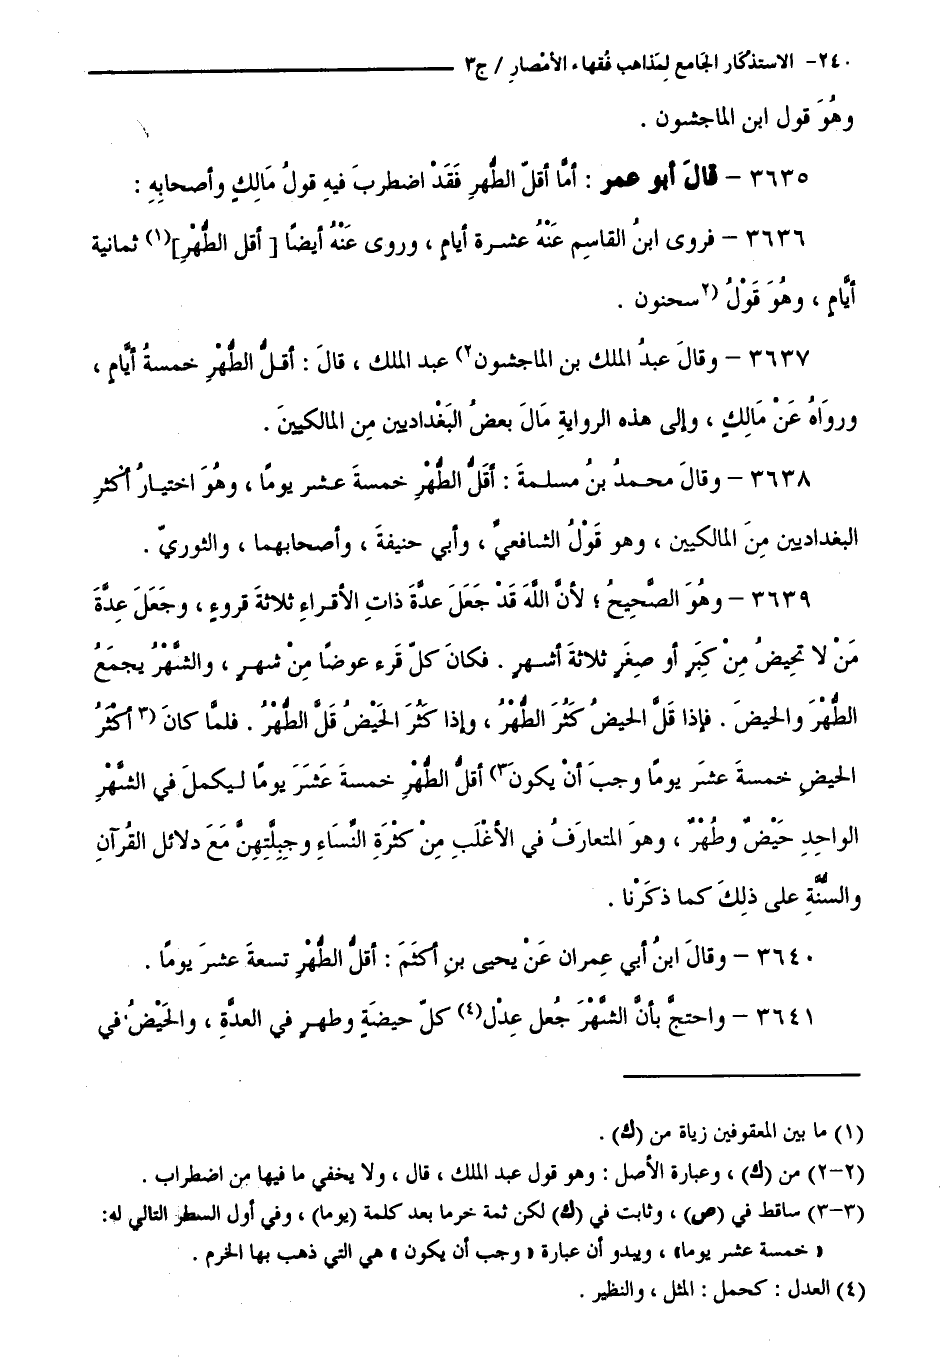 ٢٤٠- الاستذْكَار الجَامع لِمَذاهب فُقهاء الأمْصارِ / ج٣
وهُوَ قول ابن الماجشون .
٣٦٣٥ – قالَ أبو عمر : أمَّا أقلّ الطُّهرِ فَقَدْ اضطربَ فيهِ قولُ مَالِكٍ وأصحابِهِ :
٣٦٣٦ – فروى ابنُ القاسِم عَنْهُ عشـرة أيام ، وروى عَنْهُ أيضًا [ أقل الطُّهْرِ](١) ثمانية
أيَّامٍ ، وهُوَ قَوْلُ (٢سحنون .
٣٦٣٧ – وقالَ عبدُ الملك بن الماجشون٢) عبد الملك ، قالَ : أقـلُّ الطُّهْرِ خمسةُ أيَّامٍ ،
ورواَهُ عَنْ مَالِكٍ ، وإلى هذه الروايةِ مَالَ بعضُ البَغْداديين مِن المالكيينَ .
٣٦٣٨ – وقالَ محـمدُ بنُ مسلـمةَ : أقَلُّ الطُّهْرِ خمسةَ عـشر يومًا ، وهُوَ اختيـارُ أكثرِ
البغداديين مِنَ المالكيين ، وهو قَوْلُ الشافعيِّ ، وأبي حنيفةَ ، وأصحابهما ، والثوريّ .
٣٦٣٩ – وهُوَ الصَّحِيحُ ؛ لأنَّ اللَّهَ قَدْ جَعَلَ عدَّةَ ذاتِ الأقـراءِ ثلاثةَ قروءٍ ، وجَعَلَ عِدَّةَ
مَنْ لا تحِيضُ مِنْ كِبَرٍ أو صِغَرٍ ثلاثةَ أشـهرٍ . فكانَ كلّ قَرء عوضًا مِنْ شهـرٍ ، والشَّهْرُ يجمَعُ
الطُّهْرَ والحيضَ . فإذا قَلَّ الحيضُ كَثُرَ الطُّهْرُ ، وإذا كَثُرَ الحَيْضُ قَلَّ الطُّهْرُ . فلمَّا كانَ (٣ أكْثَرُ
الحيضِ خمسةَ عشرَ يومًا وجبَ أنْ يكونَ٣) أقلُّ الطُّهْرِ خمسةَ عَشَرَ يومًا لـيكملَ في الشَّهْرِ
الواحِدِ حَيْضٌ وطُهْرٌ ، وهوَ المتعارَفُ في الأغْلَبِ مِنْ كثْرَةِ النِّسَاءِ وجِبِلَّتِهِنَّ مَعَ دلائل القُرآنِ
والسُّنَّةِ على ذلِكَ كما ذكَرْنا .
٣٦٤٠ – وقالَ ابنُ أبي عِمران عَنْ يحيى بنِ أكثَمَ : أقلُّ الطُّهْرِ تسعةَ عشرَ يومًا .
٣٦٤١ – واحتجَّ بأنَّ الشَّهْرَ جُعل عِدْل(٤) كلّ حيضَةٍ وطهـرٍ في العدَّةِ ، والحَيْضُ في
(١) ما بين المعقوفين زياة من (ك) .
(٢-٢) من (ك) ، وعبارة الأصل : وهو قول عبد الملك ، قال ، ولا يخفي ما فيها من اضطراب .
(٣-٣) ساقط في (ص) ، وثابت في (ك) لكن ثمة خرما بعد كلمة (يوما) ، وفي أول السطر التالي له:
« خمسة عشر يوما» ، ويبدو أن عبارة « وجب أن يكون » هي التي ذهب بها الخرم .
(٤) العدل : كحمل : المثل ، والنظير .